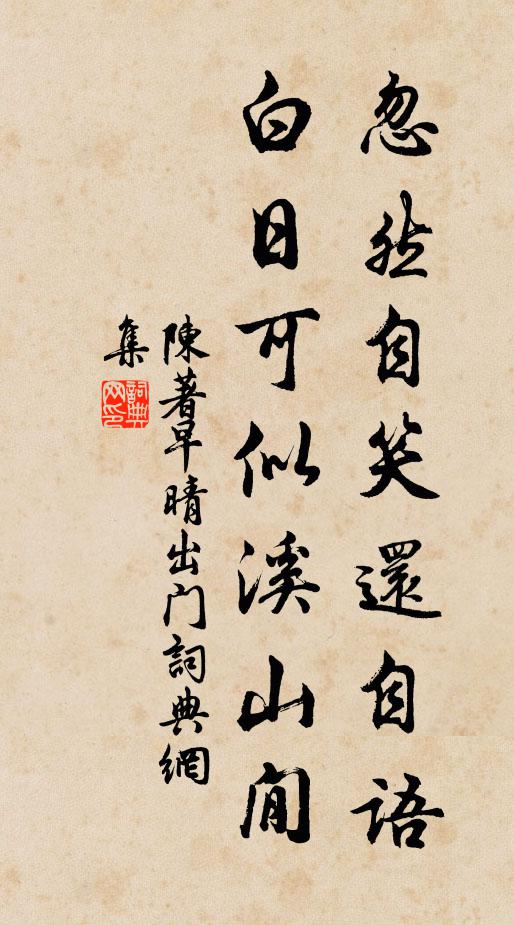 忽然自笑還自語
白日可似溪山閒
陳著早晴出門詞典網
集
詞典網印